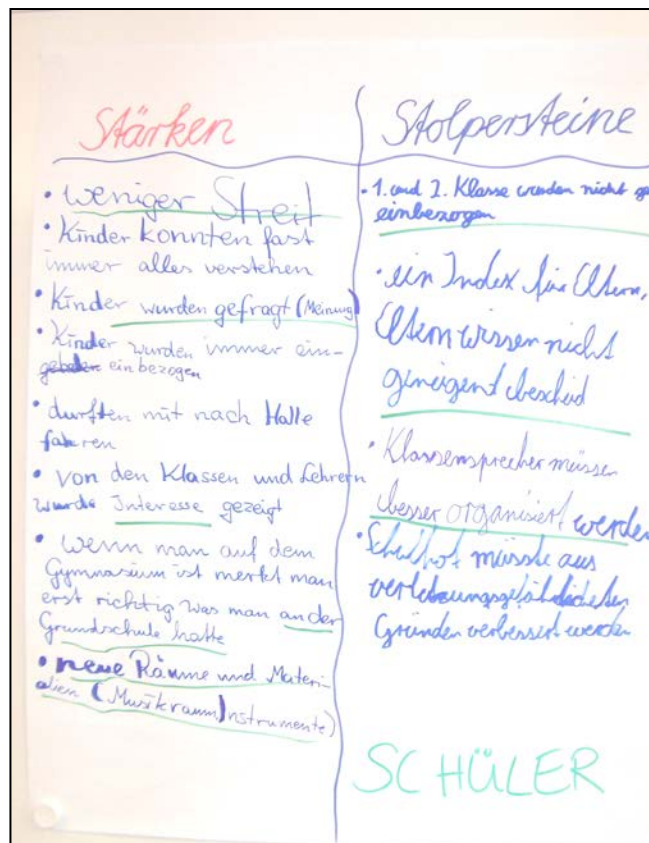 Stärken
• weniger Streit
• Kinder konnten fast
immer alles verstehen
• Kinder wurden gefragt (Meinung)
• Kinder wurden immer ein-
einbezogen
• durften mit nach Halle
fahren
• von den Klassen und Lehrern
wurde Interesse gezeigt
• wenn man auf dem
Gymnasium ist merkt man
erst richtig was man an der
Grundschule hatte
• neue Räume und Materi-
alien (Musikraum Instrumente)
Stolpersteine
• 1. und 2. Klasse wurden nicht
einbezogen
• ein Index für Eltern,
Eltern wissen nicht
genügend bescheid
• Klassensprecher müssen
besser organisiert werden
• Schulhof müsste aus
Gründen verbessert werden
SCHÜLER